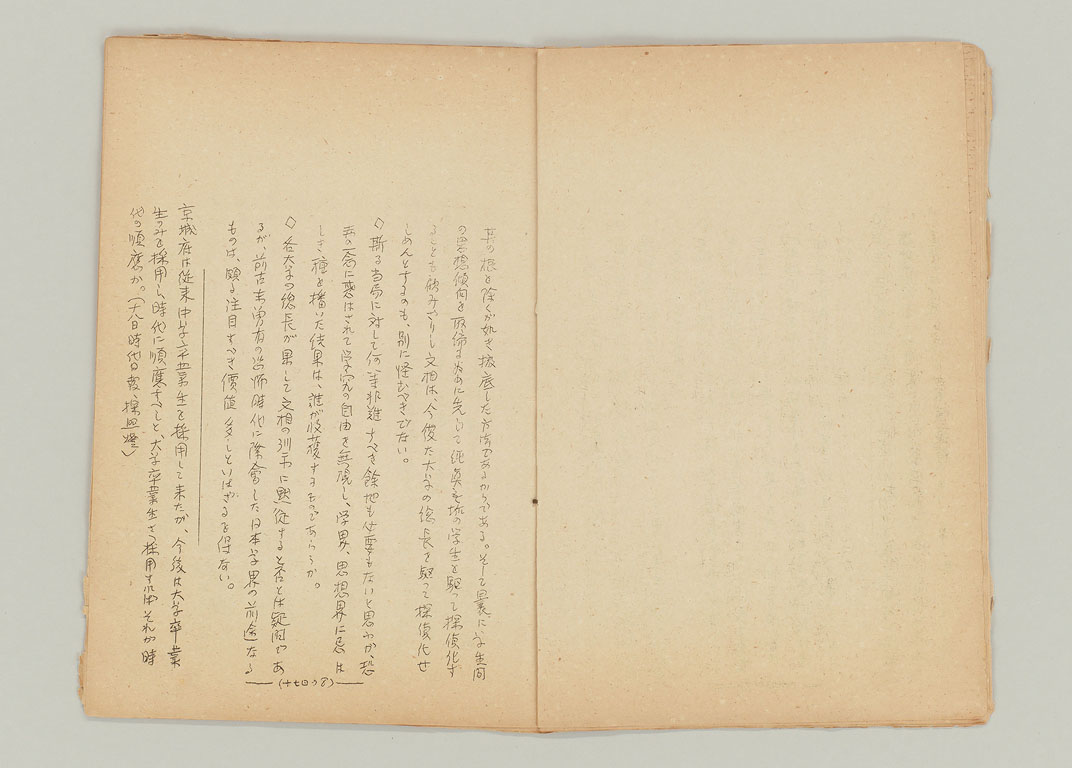 其の根を除くが如き抜底した方法であるからである。そして曩に学生間
の思想傾向を取締る為めに先いて純真無垢の学生を駆って探偵化す
ることを敢みざりし文相は、今復た大学の総長を駆って探偵化せ
しめんとするのも、別に怪むべきでない。
◇斯る当局に対して何等非難すべき餘地も必要もないと思ふが、恐
怖の念に悪はされて学究の自由を無視し、学界、思想界に忌は
しき種を播いた結果は、誰が収穫するものであらうか。
◇各大学の総長が果して文相の訓示に黙従すると否とは疑問であ
るが、前古未曽有の恐怖時代に際会した日本学界の前途なる
ものは、頗る注目すべき價値多しといはざるを得ない。
―(十七日の分)―
京城府は従来中学卒業生を採用して来たが、今後は大学卒業
生のみを採用し、時代に順應すべしと、大学卒業生を採用すれば それが時
代の順應か。(十八日時代日報、探照燈)